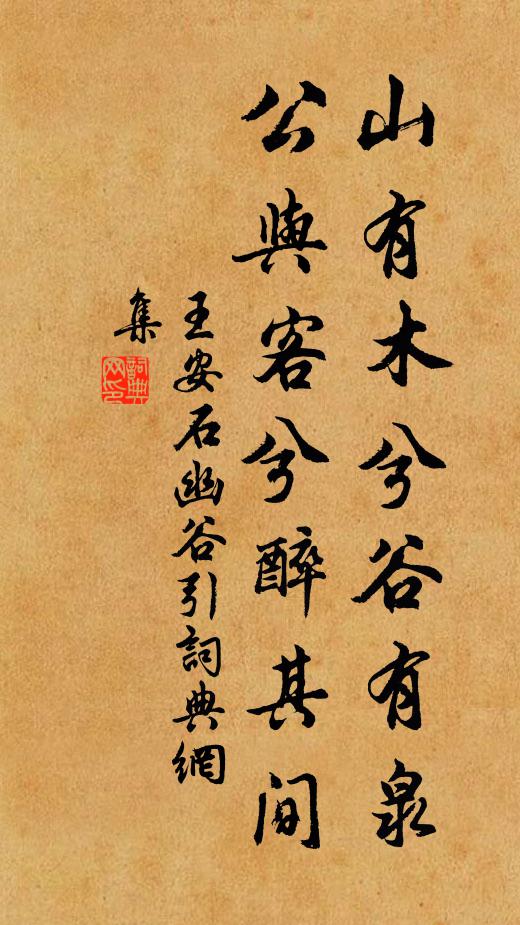 山有木兮谷有泉
公與客兮醉其间
王安石幽谷引詞典網
集
詞典网印